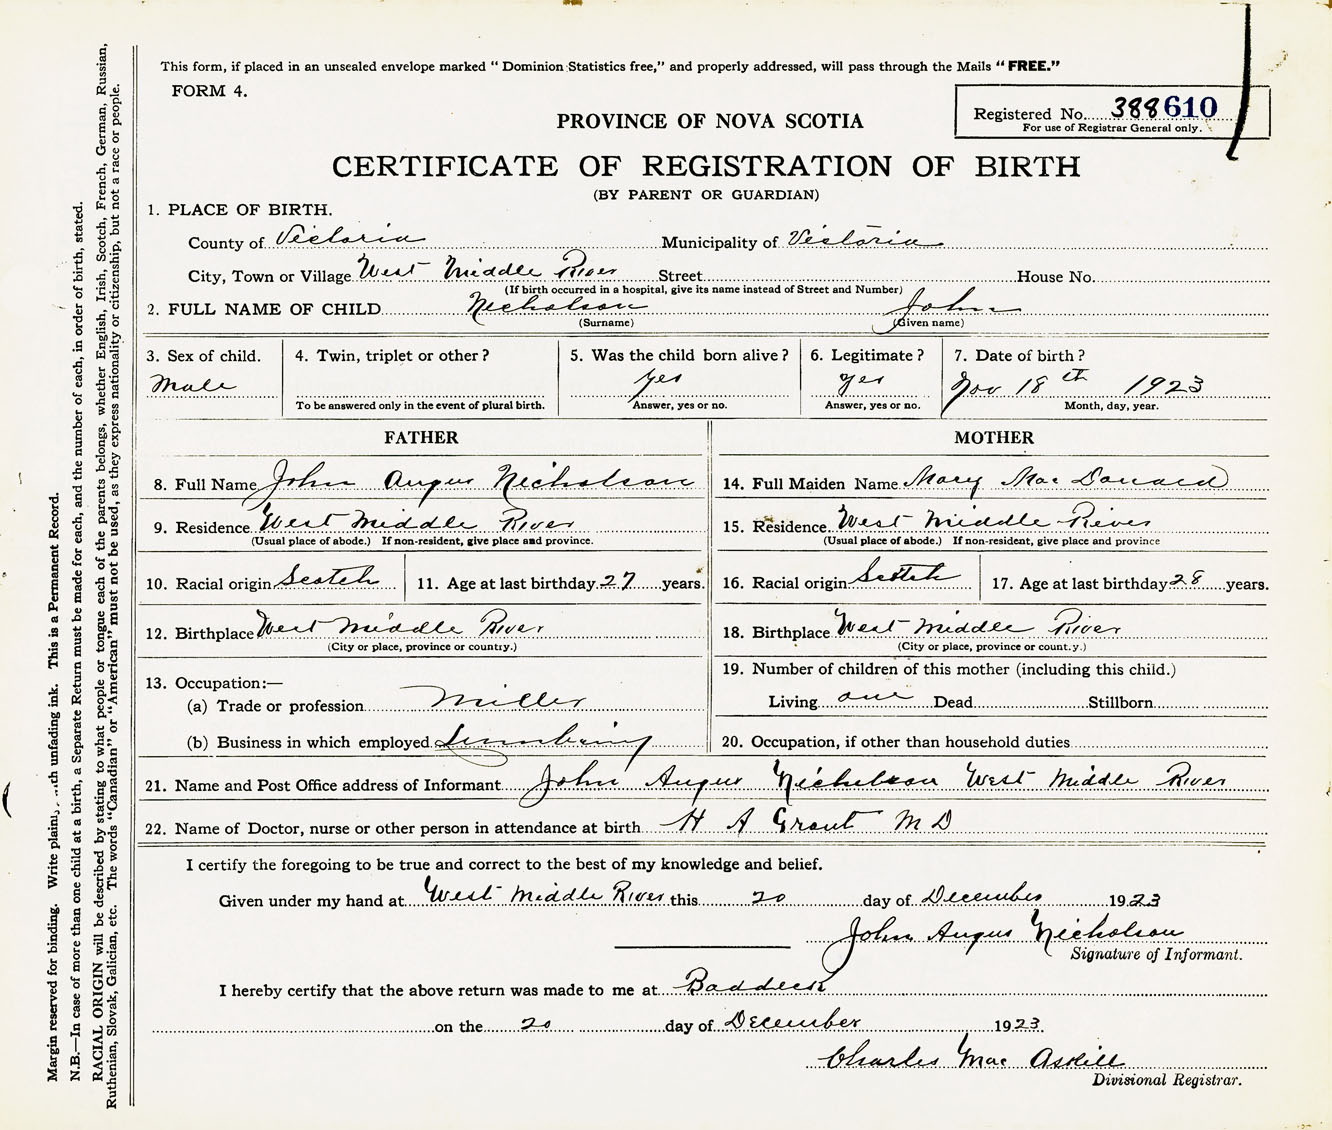 This form, if placed in an unsealed envelope marked "Dominion Statistics free," and properly addressed, will pass through the Mails "FREE."
FORM 4.
Registered No. 388610
For use of Registrar General only.
PROVINCE OF NOVA SCOTIA
CERTIFICATE OF REGISTRATION OF BIRTH
(BY PARENT OR GUARDIAN)
1. PLACE OF BIRTH.
County of Victoria Municipality of Victoria
City, Town or Village West Middle River Street House No.
(If birth occurred in a hospital, give its name instead of Street and Number)
2. FULL NAME OF CHILD Nicholson John
(Surname) (Given name)
3. Sex of child. Male
4. Twin, triplet or other?
To be answered only in the event of plural birth.
5. Was the child born alive? yes
Answer, yes or no.
6. Legitimate? yes
Answer, yes or no.
7. Date of birth? Nov 18th 1923
Month, day, year.
FATHER
8. Full Name John Angus Nicholson
9. Residence West Middle River
(Usual place of abode.) If non-resident, give place and province.
10. Racial origin Scotch 11. Age at last birthday 27 years.
12. Birthplace West Middle River
(City or place, province or country.)
13. Occupation:—
(a) Trade or profession Miller
(b) Business in which employed Lumbering
MOTHER
14. Full Maiden Name Mary Mac Donald
15. Residence West Middle River
(Usual place of abode.) If non-resident, give place and province
16. Racial origin Scotch 17. Age at last birthday 28 years.
18. Birthplace West Middle River
(City or place, province or count.y.)
19. Number of children of this mother (including this child.)
Living one Dead Stillborn
20. Occupation, if other than household duties
21. Name and Post Office address of Informant John Angus Nicholson West Middle River
22. Name of Doctor, nurse or other person in attendance at birth H A Grant M D
I certify the foregoing to be true and correct to the best of my knowledge and belief.
Given under my hand at West Middle River this 20 day of December 1923
John Angus Nicholson
Signature of Informant.
I hereby certify that the above return was made to me at Baddeck
on the 20 day of December 1923.
Charles Mac Askill
Divisional Registrar.
Margin reserved for binding. Write plain, with unfading ink. This is a Permanent Record.
N.B.—In case of more than one child at a birth, a Separate Return must be made for each, and the number of each, in order of birth, stated.
RACIAL ORIGIN will be described by stating to what people or tongue each of the parents belongs, whether English, Irish, Scotch, French, German, Russian,
Ruthenian, Slovak, Galician, etc. The words "Canadian" or "American" must not be used, as they express nationality or citizenship, but not a race or people.